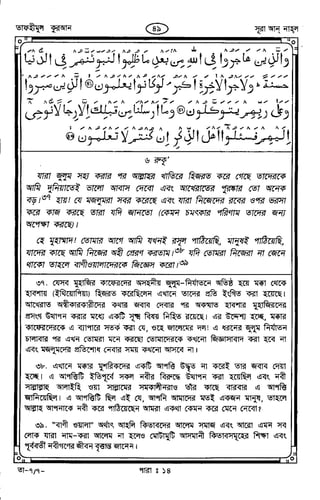 তাফহীমুল কুরআন
৪৯
সূরা আন্ নাহল
وَالَّذِينَ هَاجَرُوا فِي اللَّهِ مِنْ بَعْدِ مَا ظُلِمُوا لَنُبَوِّئَنَّهُمْ فِي الدُّنْيَا
حَسَنَةً ۖ وَلَأَجْرُ الْآخِرَةِ أَكْبَرُ ۚ لَوْ كَانُوا يَعْلَمُونَ ﴿٤١﴾ الَّذِينَ صَبَرُوا
وَعَلَىٰ رَبِّهِمْ يَتَوَكَّلُونَ ﴿٤٢﴾ وَمَا أَرْسَلْنَا مِنْ قَبْلِكَ إِلَّا رِجَالًا نُوحِي
إِلَيْهِمْ فَاسْأَلُوا أَهْلَ الذِّكْرِ إِنْ كُنْتُمْ لَا تَعْلَمُونَ ﴿٤٣﴾
৬ রুকূ'
যারা জুলুম সহ্য করার পর আল্লাহর খাতিরে হিজরত করে গেছে তাদেরকে
আমি দুনিয়াতেই ভালো আবাস দেবো এবং আখেরাতের পুরস্কার তো অনেক
বড়।৩৭ হায়! যে মজলুমরা সবর করেছে এবং যারা নিজেদের রবের ওপর ভরসা
করে কাজ করছে তারা যদি জানতো (কেমন চমৎকার পরিণাম তাদের জন্য
অপেক্ষা করছে)।
হে মুহাম্মাদ! তোমার আগে আমি যখনই রসূল পাঠিয়েছি, মানুষই পাঠিয়েছি,
যাদের কাছে আমি নিজের অহী প্রেরণ করতাম।৩৮ যদি তোমরা নিজেরা না জেনে
থাকো তাহলে বাণীওয়ালাদেরকে জিজ্ঞেস করো।৩৯
৩৭. যেসব মুহাজির কাফেরদের অসহনীয় জুলুম-নির্যাতনে অতিষ্ঠ হয়ে মক্কা থেকে
হাবশায় (ইথিয়োপিয়া) হিজরত করেছিলেন এখানে তাদের প্রতি ইংগিত করা হয়েছে।
আখেরাত অস্বীকারকারীদের কথার জবাব দেবার পর অকস্মাত হাবশার মুহাজিরদের
প্রসংগ উত্থাপন করার মধ্যে একটি সূক্ষ্ম বিষয় নিহিত রয়েছে। এর উদ্দেশ্য হচ্ছে, মক্কার
কাফেরদেরকে এ ব্যাপারে সতর্ক করা যে, ওহে জালেমের দল! এ ধরনের জুলুম নির্যাতন
চালাবার পর এখন তোমরা মনে করছো তোমাদেরকে কখনো জিজ্ঞাসাবাদ করা হবে না
এবং মজলুমদের প্রতিশোধ নেবার সময় কখনো আসবে না।
৩৮. এখানে মক্কার মুশরিকদের একটি আপত্তি উদ্ধৃত না করেই তার জবাব দেয়া
হচ্ছে। এ আপত্তিটি ইতিপূর্বে সকল নবীর বিরুদ্ধে উত্থাপন করা হয়েছিল এবং নবী
সাল্লাল্লাহু আলাইহি ওয়া সাল্লামের সমকালীনরাও তাঁর কাছে বারবার এ আপত্তি
জানিয়েছিল। এ আপত্তিটি ছিল এই যে, আপনি আমাদের মতই একজন মানুষ, তাহলে
আল্লাহ আপনাকে নবী করে পাঠিয়েছেন আমরা একথা কেমন করে মেনে নেবো?
৩৯. "বাণী ওয়ালা" অর্থাৎ আহলি কিতাবদের আলেম সমাজ এবং আরো এমন সব
লোক যারা নাম-করা আলেম না হলেও মোটামুটি আসমানী কিতাবসমূহের শিক্ষা এবং
পূর্ববর্তী নবীগণের জীবন বৃত্তান্ত জানেন।
তা-৭/৭-
পারা : ১৪